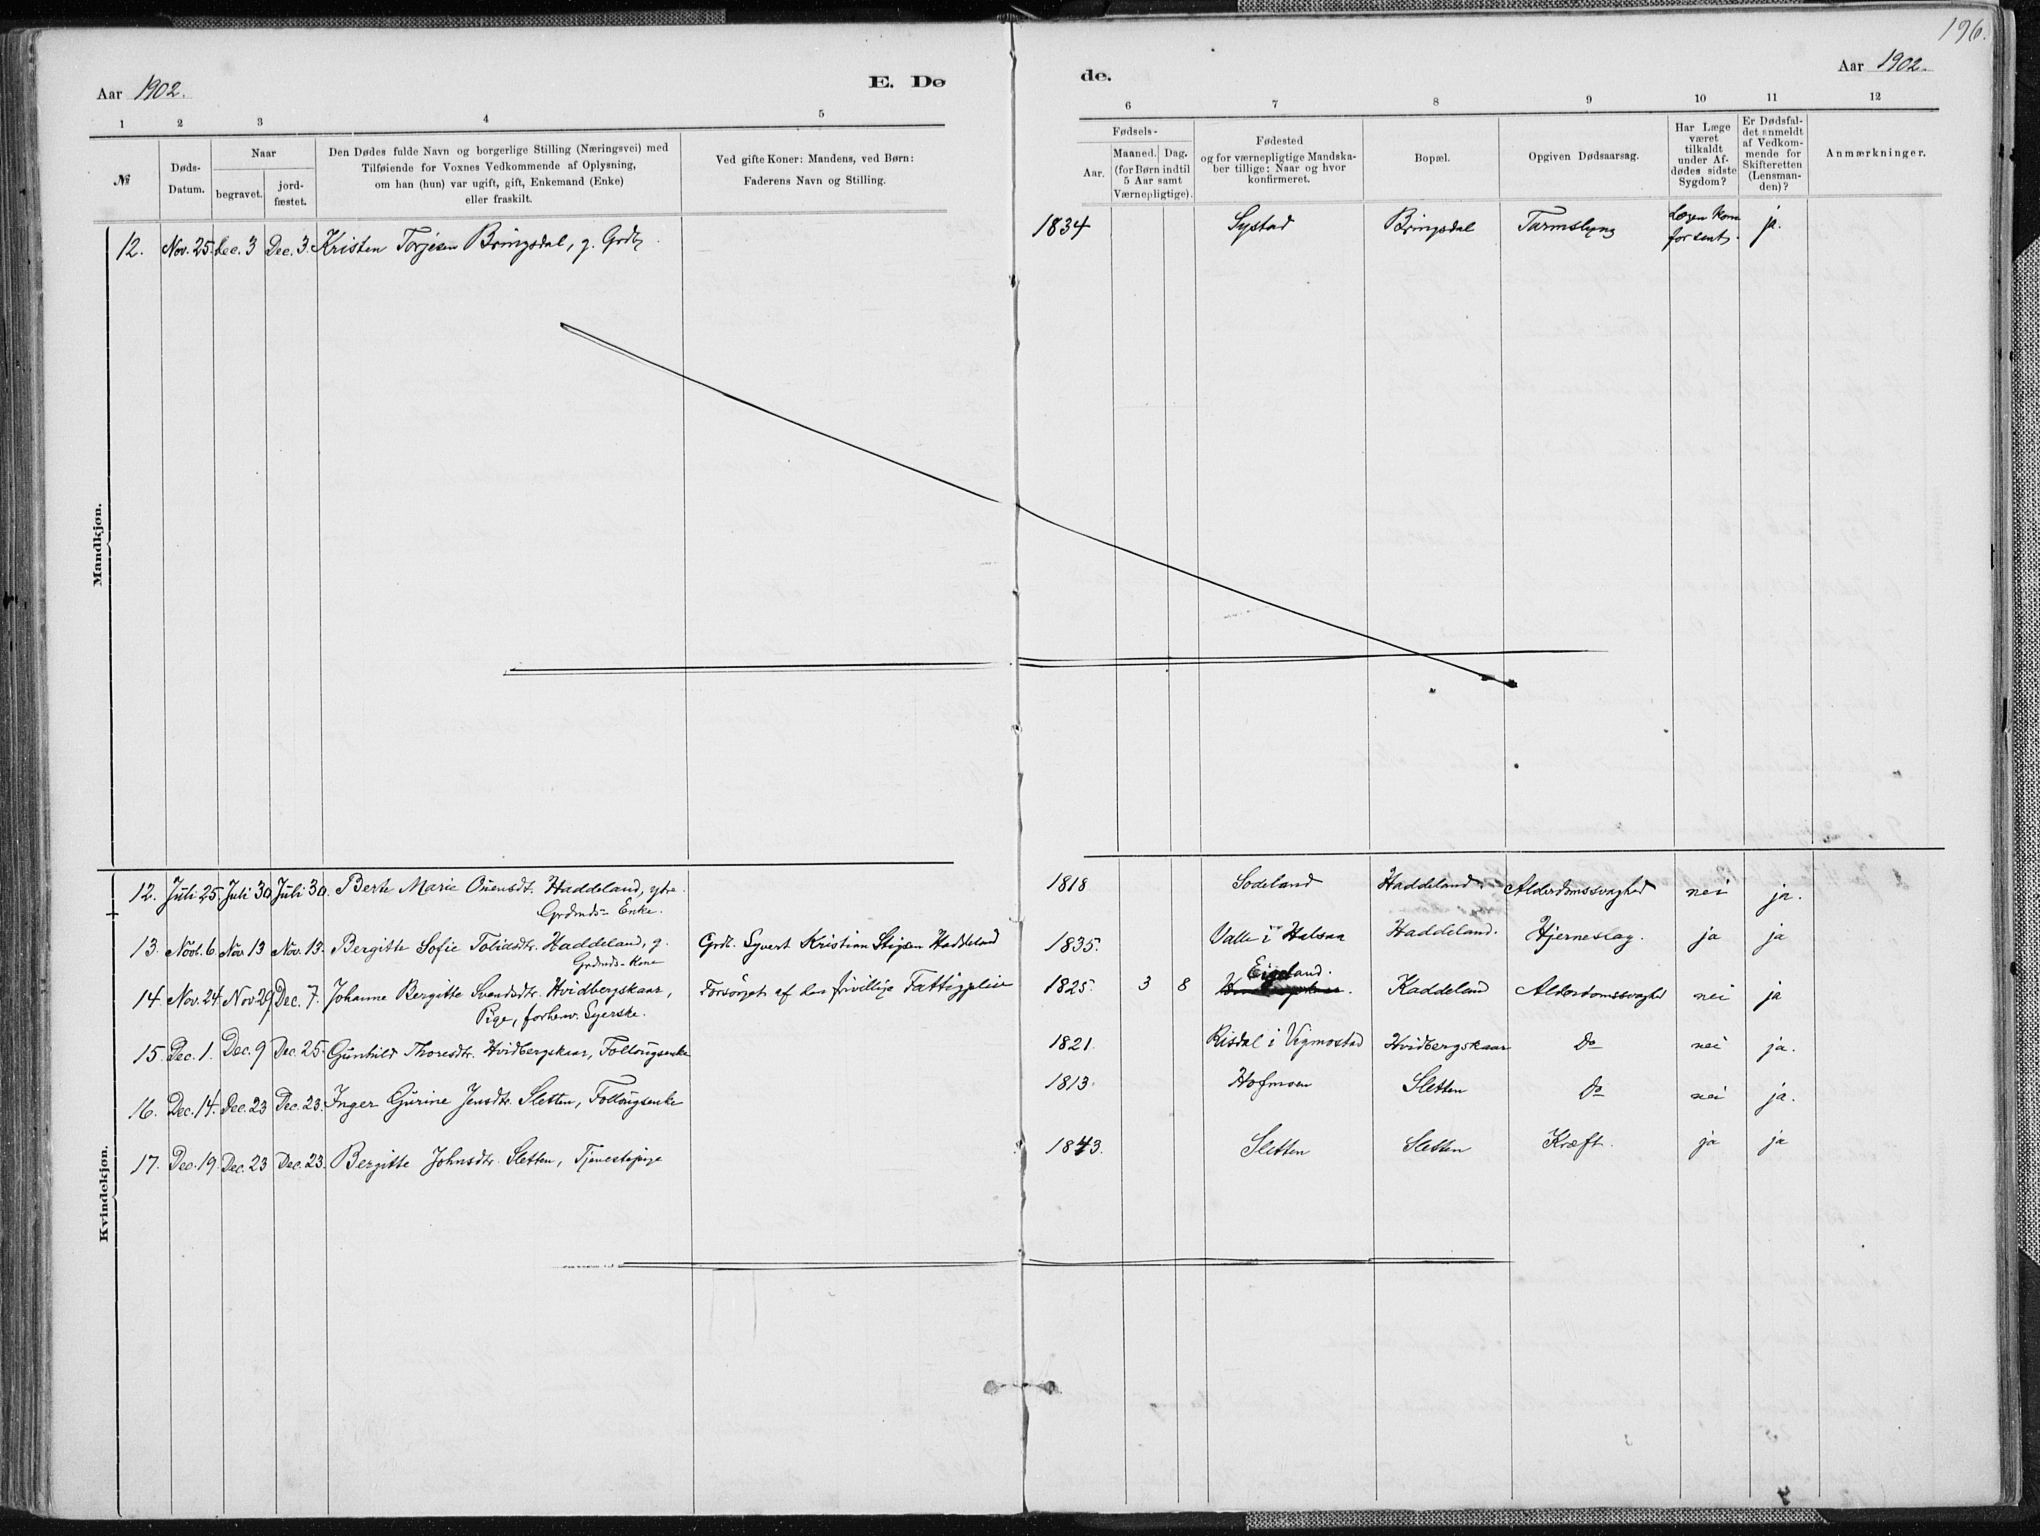 196.
Aar 1902.
E. Dø
de.
Aar 1902.
1 2 3 4 5 6 7 8 9 10 11 12
№
Døds-Datum.
Naar
begravet.
jord-
fæstet.
Den Dødes fulde Navn og borgerlige Stilling (Næringsvei) med
Tilføiende for Voxnes Vedkommende af Oplysning,
om han (hun) var ugift, gift, Enkemand (Enke)
eller fraskilt.
Ved gifte Koner: Mandens, ved Børn:
Faderens Navn og Stilling.
Fødsels-
Aar.
Maaned. Dag.
(for Børn indtil
5 Aar samt
Værnepligtige).
Fødested
og for værnepligtige Mandska-
ber tillige: Naar og hvor
konfirmeret.
Bopæl.
Opgiven Dødsaarsag.
Har Læge
været
tilkaldt
under Af-
dødes sidste
Sygdom?
Er Dødsfal-
det anmeldt
af Vedkom-
mende for
Skifteretten
(Lensman-
den)?
Anmærkninger.
Mandkjøn.
12. Nov. 25. Dec. 3 Dec. 3. Kristen Torjesen Bringsdal, g. Grdb. 1834 Systad Bringsdal Tarmslyng Lægen kom for sent. ja.
Kvindekjøn.
12. Juli 25. Juli 30 Juli 30. Berte Marie Ouensdt. Haddeland, ydre. 1818 Sodeland Haddeland. Alderdomssvaghed nei ja.
Grdmds- Enke.
13. Nov. 6. Nov. 13 Nov. 13. Bergitte Sofie Tobiasdtr. Haddeland, g. Grdb. Syvert Kristian Stigsen Haddeland 1835. Valle i Halsaa Haddeland. Hjerneslag. ja ja
Grdmds-Kone
14. Nov. 24. Nov. 29 Dec. 7. Johanne Bergitte Svendsdtr. Hvidbergskaar, Forsørget af den frivillige Fattigpleie 1825. 3 8 Eigeland. Haddeland Alderdomssvaghed nei ja
Pige, forhenv. Syerske.
15. Dec. 1. Dec. 9 Dec. 25. Gunhild Thoresdtr. Hvidbergskaar, Follougsenke 1821. Risdal i Vigmostad Hvidbergskaar Do nei ja.
16. Dec. 14. Dec. 23 Dec. 23. Inger Gurine Jensdtr. Sletten, Follougsenke 1813. Hofmoen Sletten Do nei ja.
17. Dec. 19. Dec. 23 Dec. 23. Bergitte Johnsdtr. Sletten, Tjenestepige 1843. Sletten Sletten Kræft. ja ja